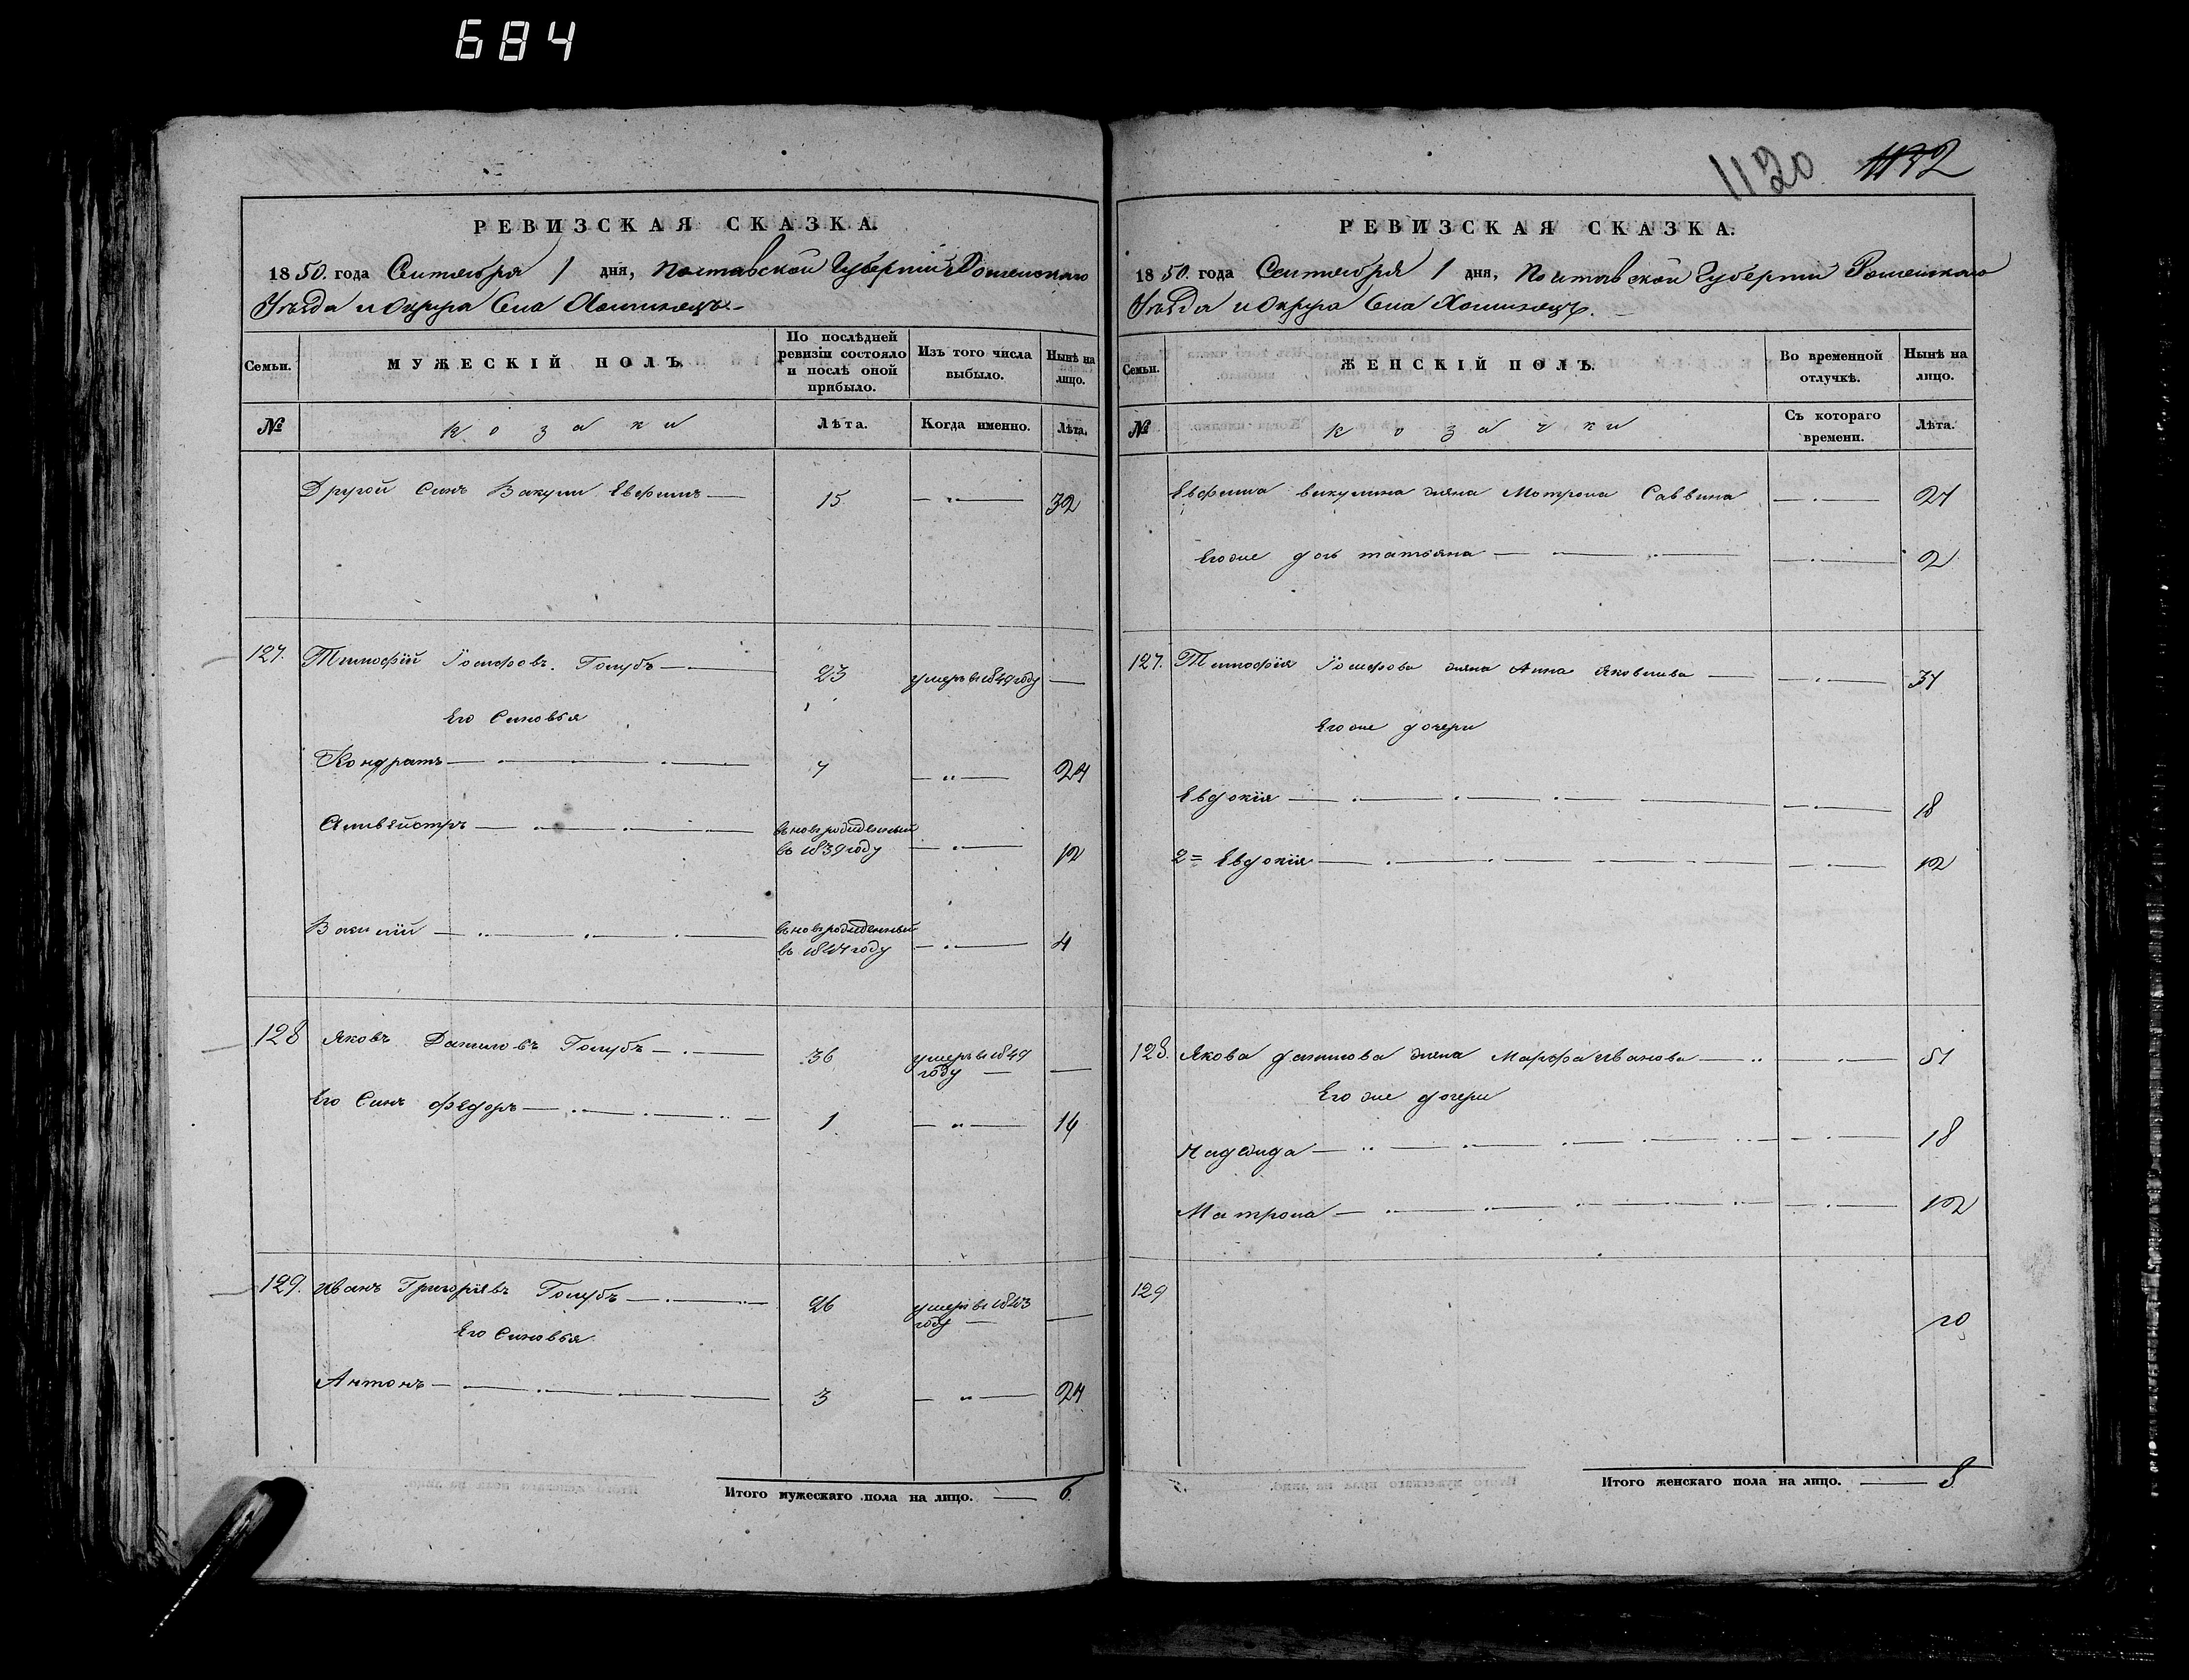 684
1120 1132
РЕВИЗСКАЯ СКАЗКА.
1850. года Сентября 1 дня, Полтавской Губернии Роменскаго
Уѣзда и Округа Села
Семьи.
МУЖЕСКІЙ ПОЛЪ.
По послѣдней ревизіи состояло и послѣ оной прибыло.
Изъ того числа выбыло.
Нынѣ на лицо.
№
Козаки
Лѣта.
Когда именно.
Лѣта.
Другой Синъ Вакули Евфимъ — 15 — " — 32
127. Тимофій Іосифовъ Голубъ — 23 умеръ в 1849 году —
Его Синовья
Кондратъ — 7 — " — 24
— вновь рожденный
въ 1839 году — " — 12
Василій — вновь рожденный
въ году — " — 4
128 Яковъ Даниловъ Голубъ — 36 умеръ в 1849
году — —
Его Синъ Федоръ — 1 — " —
129. Иванъ Григоріевъ Голубъ — 26 умеръ в 1843
году — —
Его Синовья
Антонъ — 3 — " —
Итого мужескаго пола на лицо. — 6.
РЕВИЗСКАЯ СКАЗКА.
1850. года Сентября 1 дня, Полтавской Губерніи Роменскаго
Уѣзда и Округа Села
Семьи.
ЖЕНСКІЙ ПОЛЪ.
Во временной отлучкѣ.
Нынѣ на лицо.
№
Козачки
Съ котораго времени.
Лѣта.
Евфима Вакулина жена Мотрона Саввина — " —
Его же дочь татьяна — " — 2
127. Тимофія Іосифова жена Анна Яковлива — " —
Его же дочери
Евдокія — " — 18
2= Евдокія — " — 12
128. Якова данилова жена Марфа иванова — " — 51
Его же дочери
Надежда — " — 18
Матрона — " — 12
129
Итого женскаго пола на лицо. — 8.